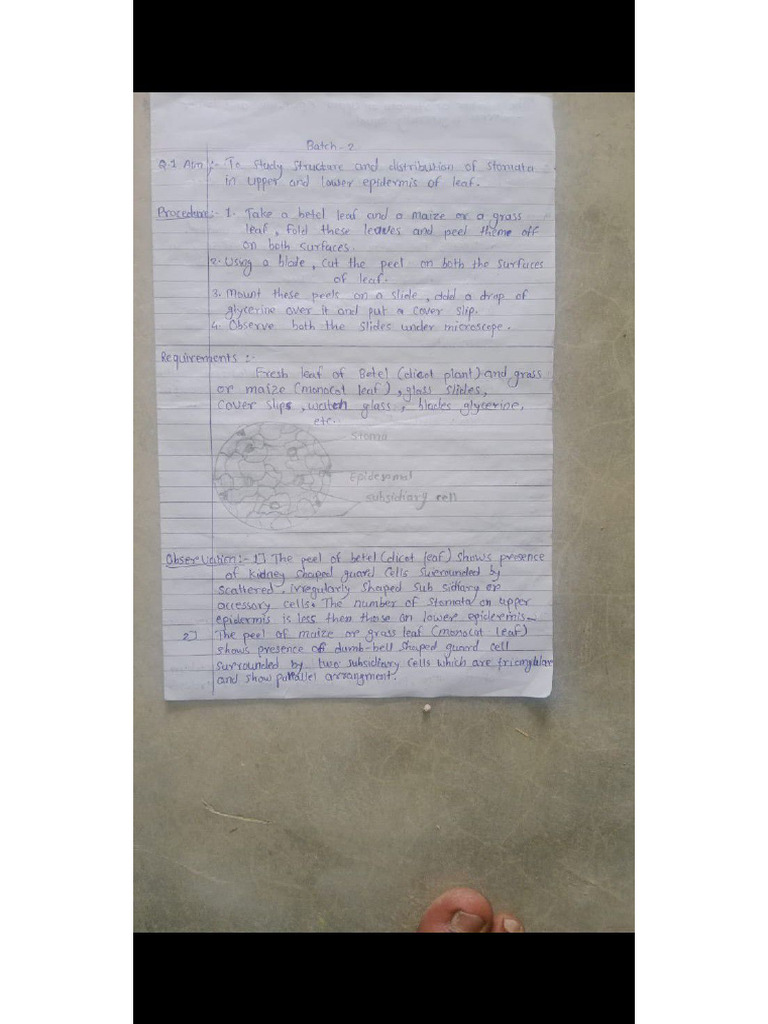 Batch - 2
Q.1 Aim :- To study structure and distribution of stomata
in upper and lower epidermis of leaf.
Procedure:- 1. Take a betel leaf and a maize or a grass
leaf, fold these leaves and peel theme off
on both surfaces.
2. Using a blade, cut the peel on both the surfaces
of leaf.
3. Mount these peels on a slide, add a drop of
glycerine over it and put a cover slip.
4. Observe both the slides under microscope.
Requirements :-
Fresh leaf of Betel (dicot plant) and grass
or maize (monocot leaf), glass slides,
cover slips, watch glass, blades glycerine,
etc.
Stoma
Epidermal
subsidiary cell
Observation:- 1] The peel of betel (dicot leaf) shows presence
of kidney shaped guard cells surrounded by
scattered, irregularly shaped sub sidiary or
accessory cells. The number of stomata on upper
epidermis is less then those on lower epidermis.
2] The peel of maize or grass leaf (monocot leaf)
shows presence of dumb-bell shaped guard cell
surrounded by two subsidiary cells which are
and show parallel arrangment.